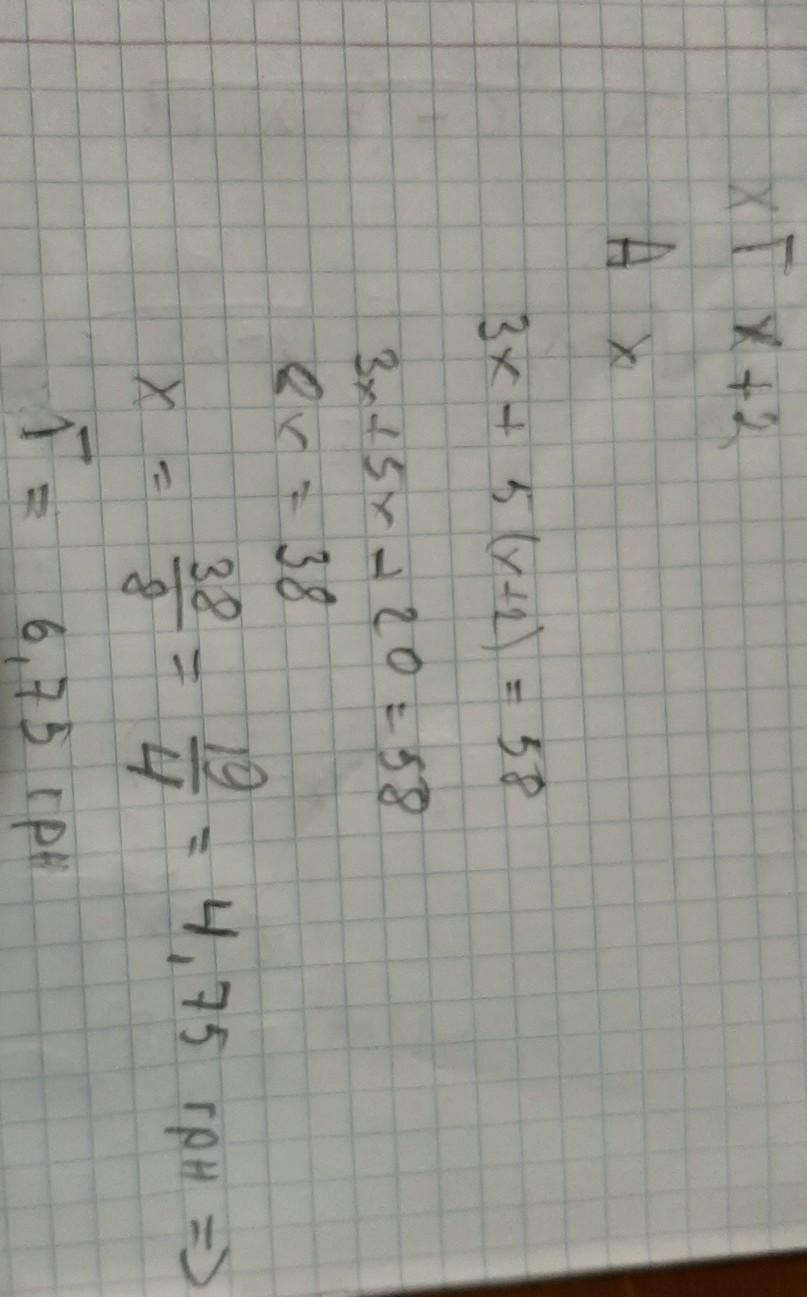 х Т х + 2
А х
3х + 5 (х+2) = 58
3х + 5х + 20 = 58
8х = 38
х = 38/8 = 19/4 = 4,75 грн =>
Т = 6,75 грн